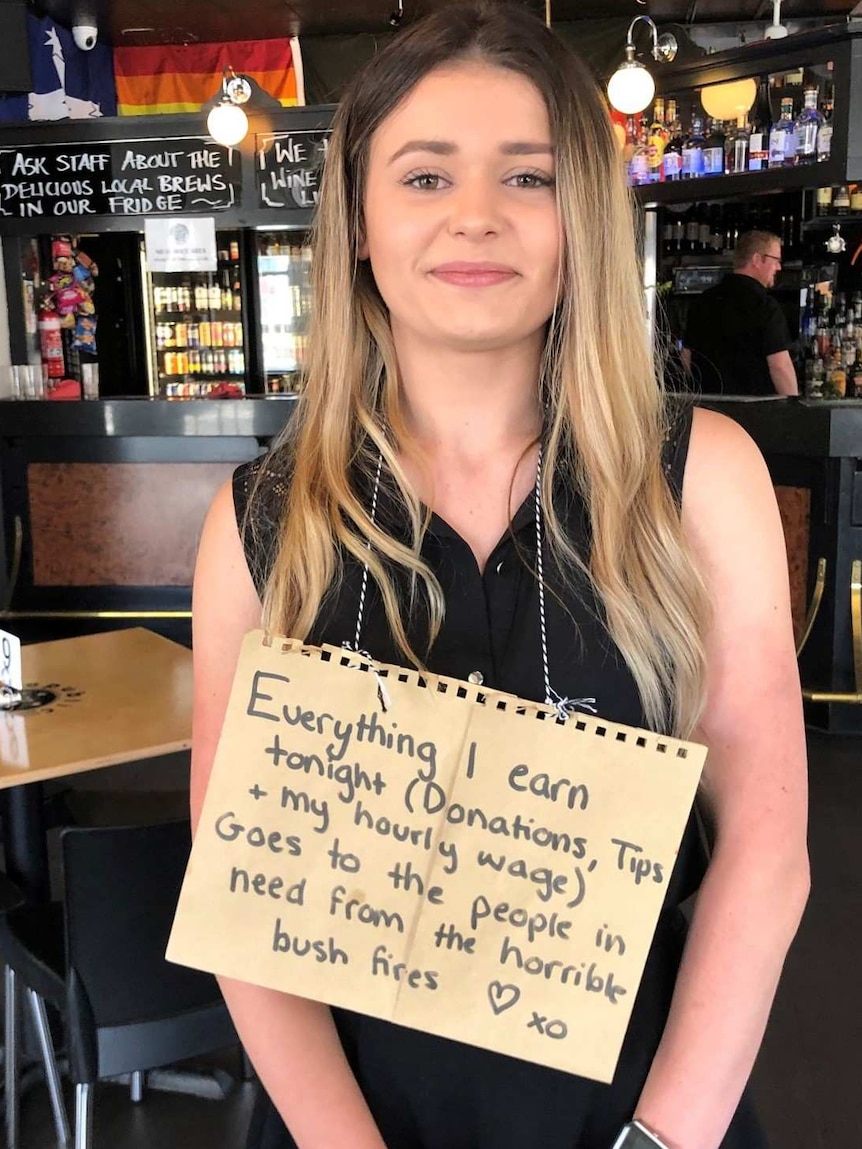 ASK STAFF ABOUT THE
DELICIOUS LOCAL BREWS
IN OUR FRIDGE
WE
WINE
Everything I earn
tonight (Donations, Tips
+ my hourly wage)
Goes to the people in
need from the horrible
bush fires ♡ xo